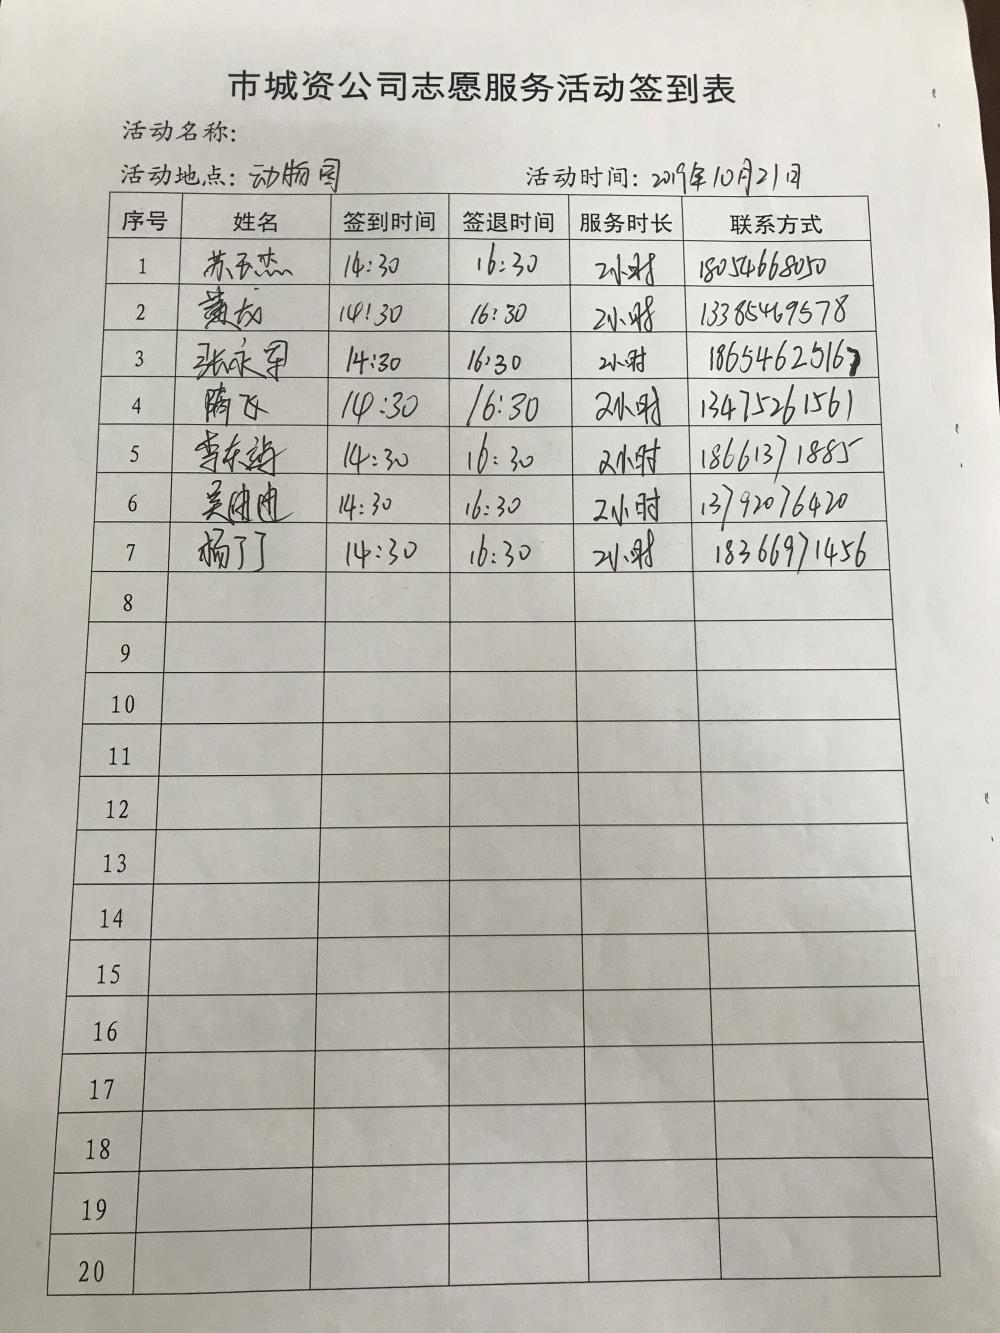 市城资公司志愿服务活动签到表
活动名称:
活动地点: 动物园 活动时间: 2019年10月21日
序号 姓名 签到时间 签退时间 服务时长 联系方式
1 苏玉杰 14:30 16:30 2小时 18054668050
2 黄龙 14:30 16:30 2小时 13385469578
3 张永军 14:30 16:30 2小时 18654625167
4 腾飞 14:30 16:30 2小时 13475261561
5 李东 14:30 16:30 2小时 18661371885
6 吴迪迪 14:30 16:30 2小时 13792076420
7 杨丁丁 14:30 16:30 2小时 18366971456
8
9
10
11
12
13
14
15
16
17
18
19
20